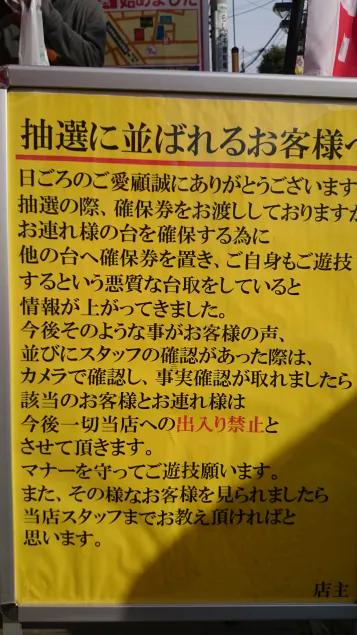 始めました
抽選に並ばれるお客様へ
日ごろのご愛顧誠にありがとうございます
抽選の際、確保券をお渡ししておりますが
お連れ様の台を確保する為に
他の台へ確保券を置き、ご自身もご遊技
するという悪質な台取をしていると
情報が上がってきました。
今後そのような事がお客様の声、
並びにスタッフの確認があった際は、
カメラで確認し、事実確認が取れましたら
該当のお客様とお連れ様は
今後一切当店への出入り禁止と
させて頂きます。
マナーを守ってご遊技願います。
また、その様なお客様を見られましたら
当店スタッフまでお教え頂ければと
思います。
店主